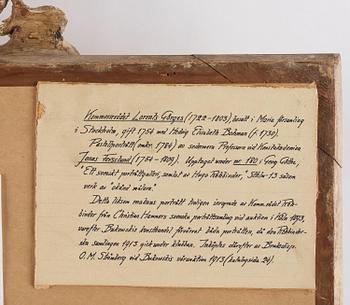 Kammarrådet Lorents Görges (1722-1803), bosatt i Maria församling
i Stockholm, gift 1754 med Hedvig Elisabeth Bohman (f. 1730).
Pastellporträtt (omkr. 1784) av sedermera Professorn vid Konstakademien
Jonas Forsslund (1754-1809). Upptaget under nr. 180 i Georg Göthe,
"Ett svenskt porträttgalleri, samlat av Hugo", Sthlm-13 såsom
verk av "okänd målare".
Detta liksom makans porträtt troligen inropade av Komm.rådet
från Christian Hammers svenska porträttsamling vid auktion i Köln 1893,
varefter Bukowskis konsthandel förvärvat båda porträtten, då den
ska samlingen 1913 gick under klubban. Inköptes därefter av Bruksdisp.
O.M. Strömberg vid Bukowskis vårauktion 1913 (katalogsida 24).